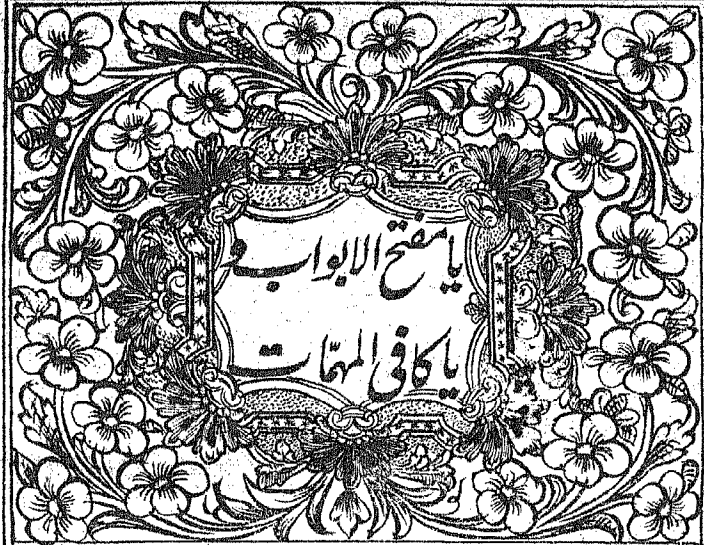 يا مفتح الابواب و
يا كافى المهمّات